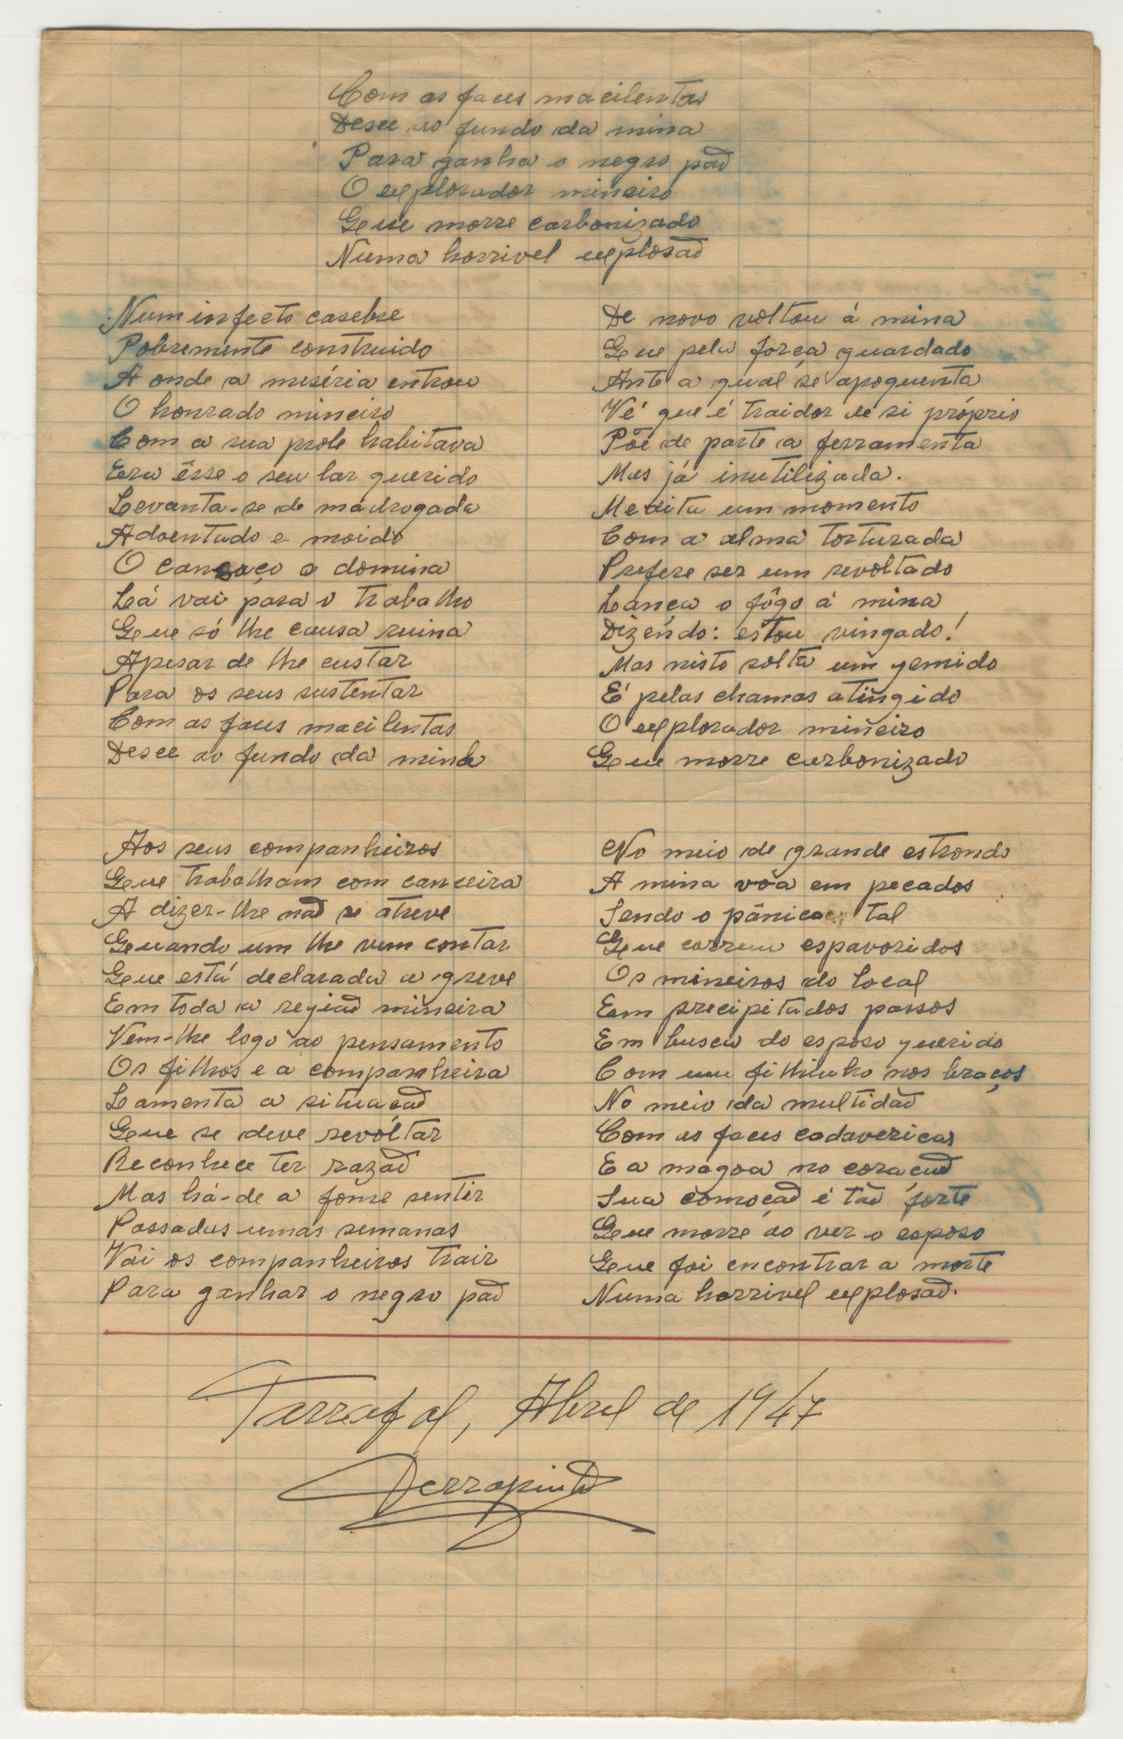 Com as faces macilentas
Desce ao fundo da mina
Para ganha o negro pão
O explorador mineiro
Que morre carbonizado
Numa horrivel explosão
Num infecto casebre
Pobremente construido
A onde a miséria entrou
O honrado mineiro
Com a sua prole habitava
Era êsse o seu lar querido
Levanta-se de madrogada
Adoentado e moido
O cansaço o domina
Lá vai para o trabalho
Que só lhe causa ruina
Apesar de lhe custar
Para os seus sustentar
Com as faces macilentas
Desce ao fundo da mina
Aos seus companheiros
Que trabalham com canceira
A dizer-lhe não se atreve
Quando um lhe vem contar
Que está declarada a greve
Em toda a região mineira
Vem-lhe logo ao pensamento
Os filhos e a companheira
Lamenta a situacão
Que se deve revoltar
Reconhece ter razão
Mas há-de a fome sentir
Passadas umas semanas
Vai os companheiros trair
Para ganhar o negro pão
De novo voltou á mina
Que pela força guardado
Ante a qual se apoquenta
Vê que é traidor de si próprio
Põe de parte a ferramenta
Mas já inutilizada.
Medita um momento
Com a alma torturada
Prefere ser um revoltado
Lança o fôgo á mina
Dizendo: estou vingado!
Mas nisto solta um gemido
É pelas chamas atingido
O explorador mineiro
Que morre carbonizado
No meio de grande estrondo
A mina vôa em pecados
Sendo o pânico tal
Que correm espavoridos
Os mineiros do local
Em precipitados passos
Em busca do esposo querido
Com um filhinho nos braços
No meio da multidão
Com as faces cadavericas
E a mágoa no coracão
Sua comoção é tão forte
Que morre ao ver o esposo
Que foi encontrar a morte
Numa horrivel explosão.
Tarrafal, Abril de 1947